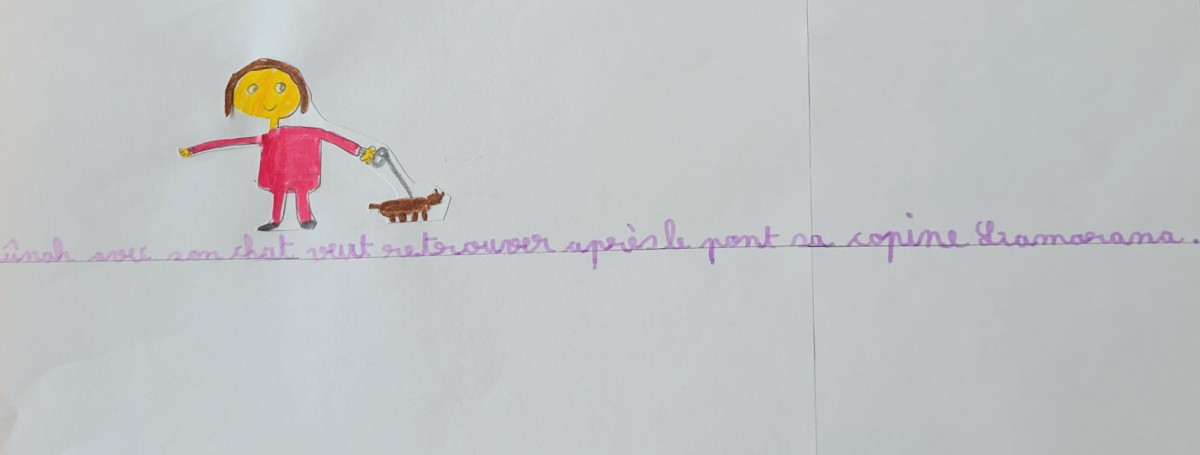 avec son chat veut retrouver après le pont sa copine